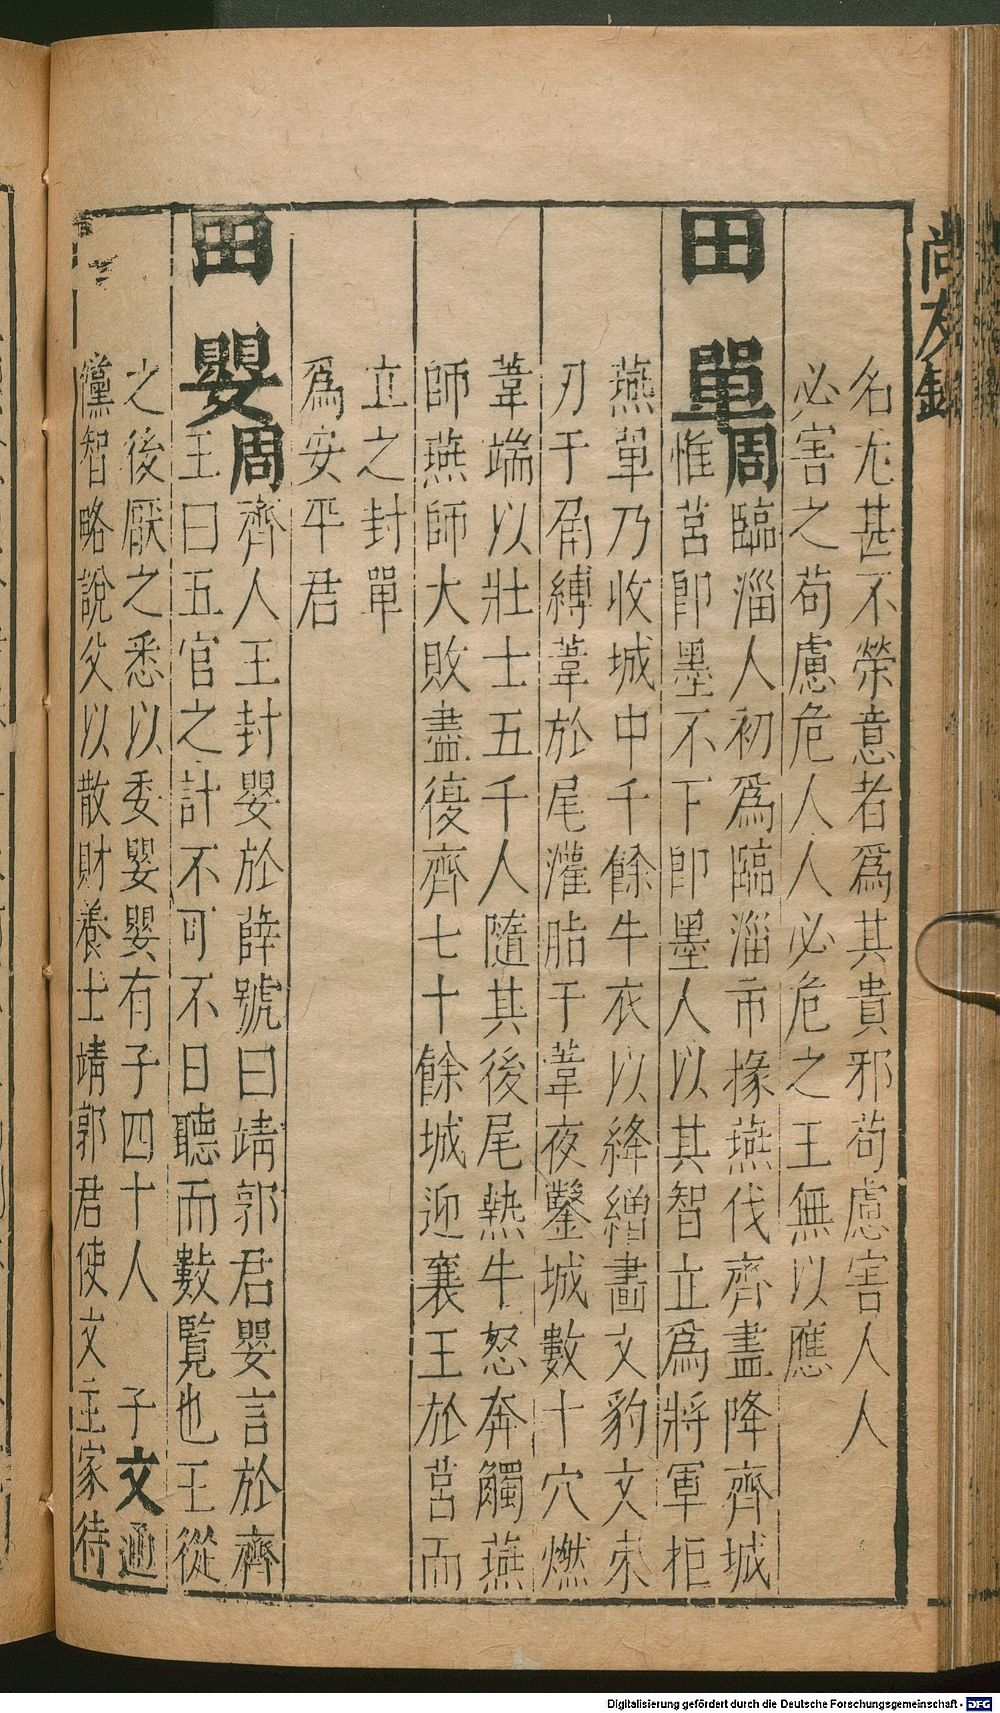 尚友錄
名尢甚不榮意者爲其貴邪苟慮害人人
必害之苟慮危人人必危之王無以應
田單周臨淄人初爲臨淄市掾燕伐齊盡降齊城
惟莒卽墨不下卽墨人以其智立爲將軍拒
燕單乃收城中千餘牛衣以絳繒畫文豹文束
刃于角縛葦於尾灌脂于葦夜鑿城數十穴燃
葦端以壯士五千人隨其後尾熱牛怒奔觸燕
師燕師大敗盡復齊七十餘城迎襄王於莒而
立之封單
爲安平君
田嬰周齊人王封嬰於薛號曰靖郭君嬰言於齊
王曰五官之計不可不日聽而數覽也王從
之後厭之悉以委嬰嬰有子四十人 子文通
儻智略說父以散財養士靖郭君使文主家待
Digitalisierung gefördert durch die Deutsche Forschungsgemeinschaft - DFG